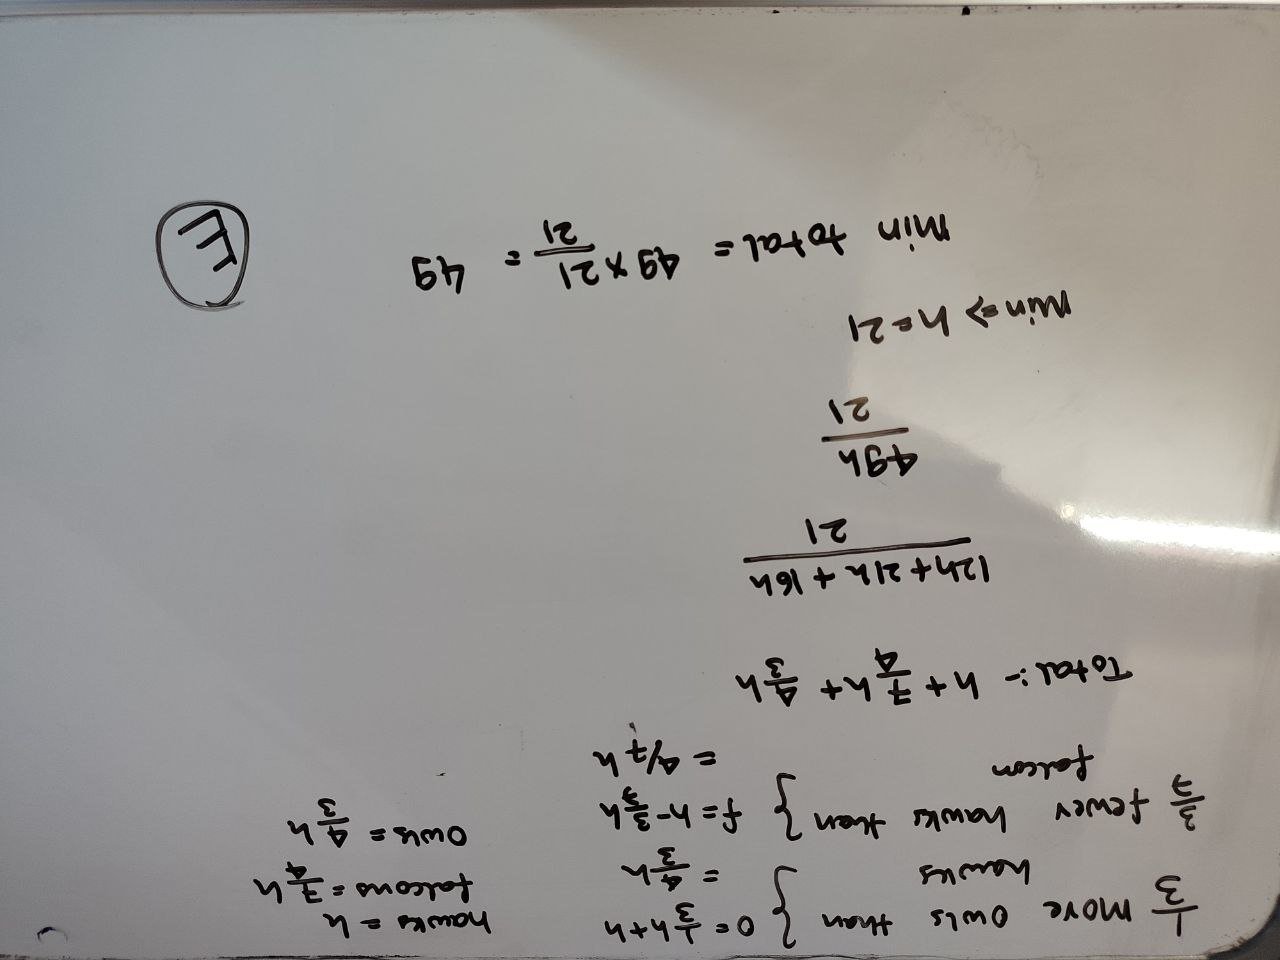 1/3 more owls than hawks } o = 1/3 h + h
= 4/3 h
3/7 fewer hawks than falcon } f = h - 3/7 h
= 4/7 h
hawks = h
falcons = 7/4 h
owls = 4/3 h
Total :- h + 7/4 h + 4/3 h
12h + 21h + 16h / 21
49h / 21
Min => h = 21
min total = 49 x 21 / 21 = 49
E